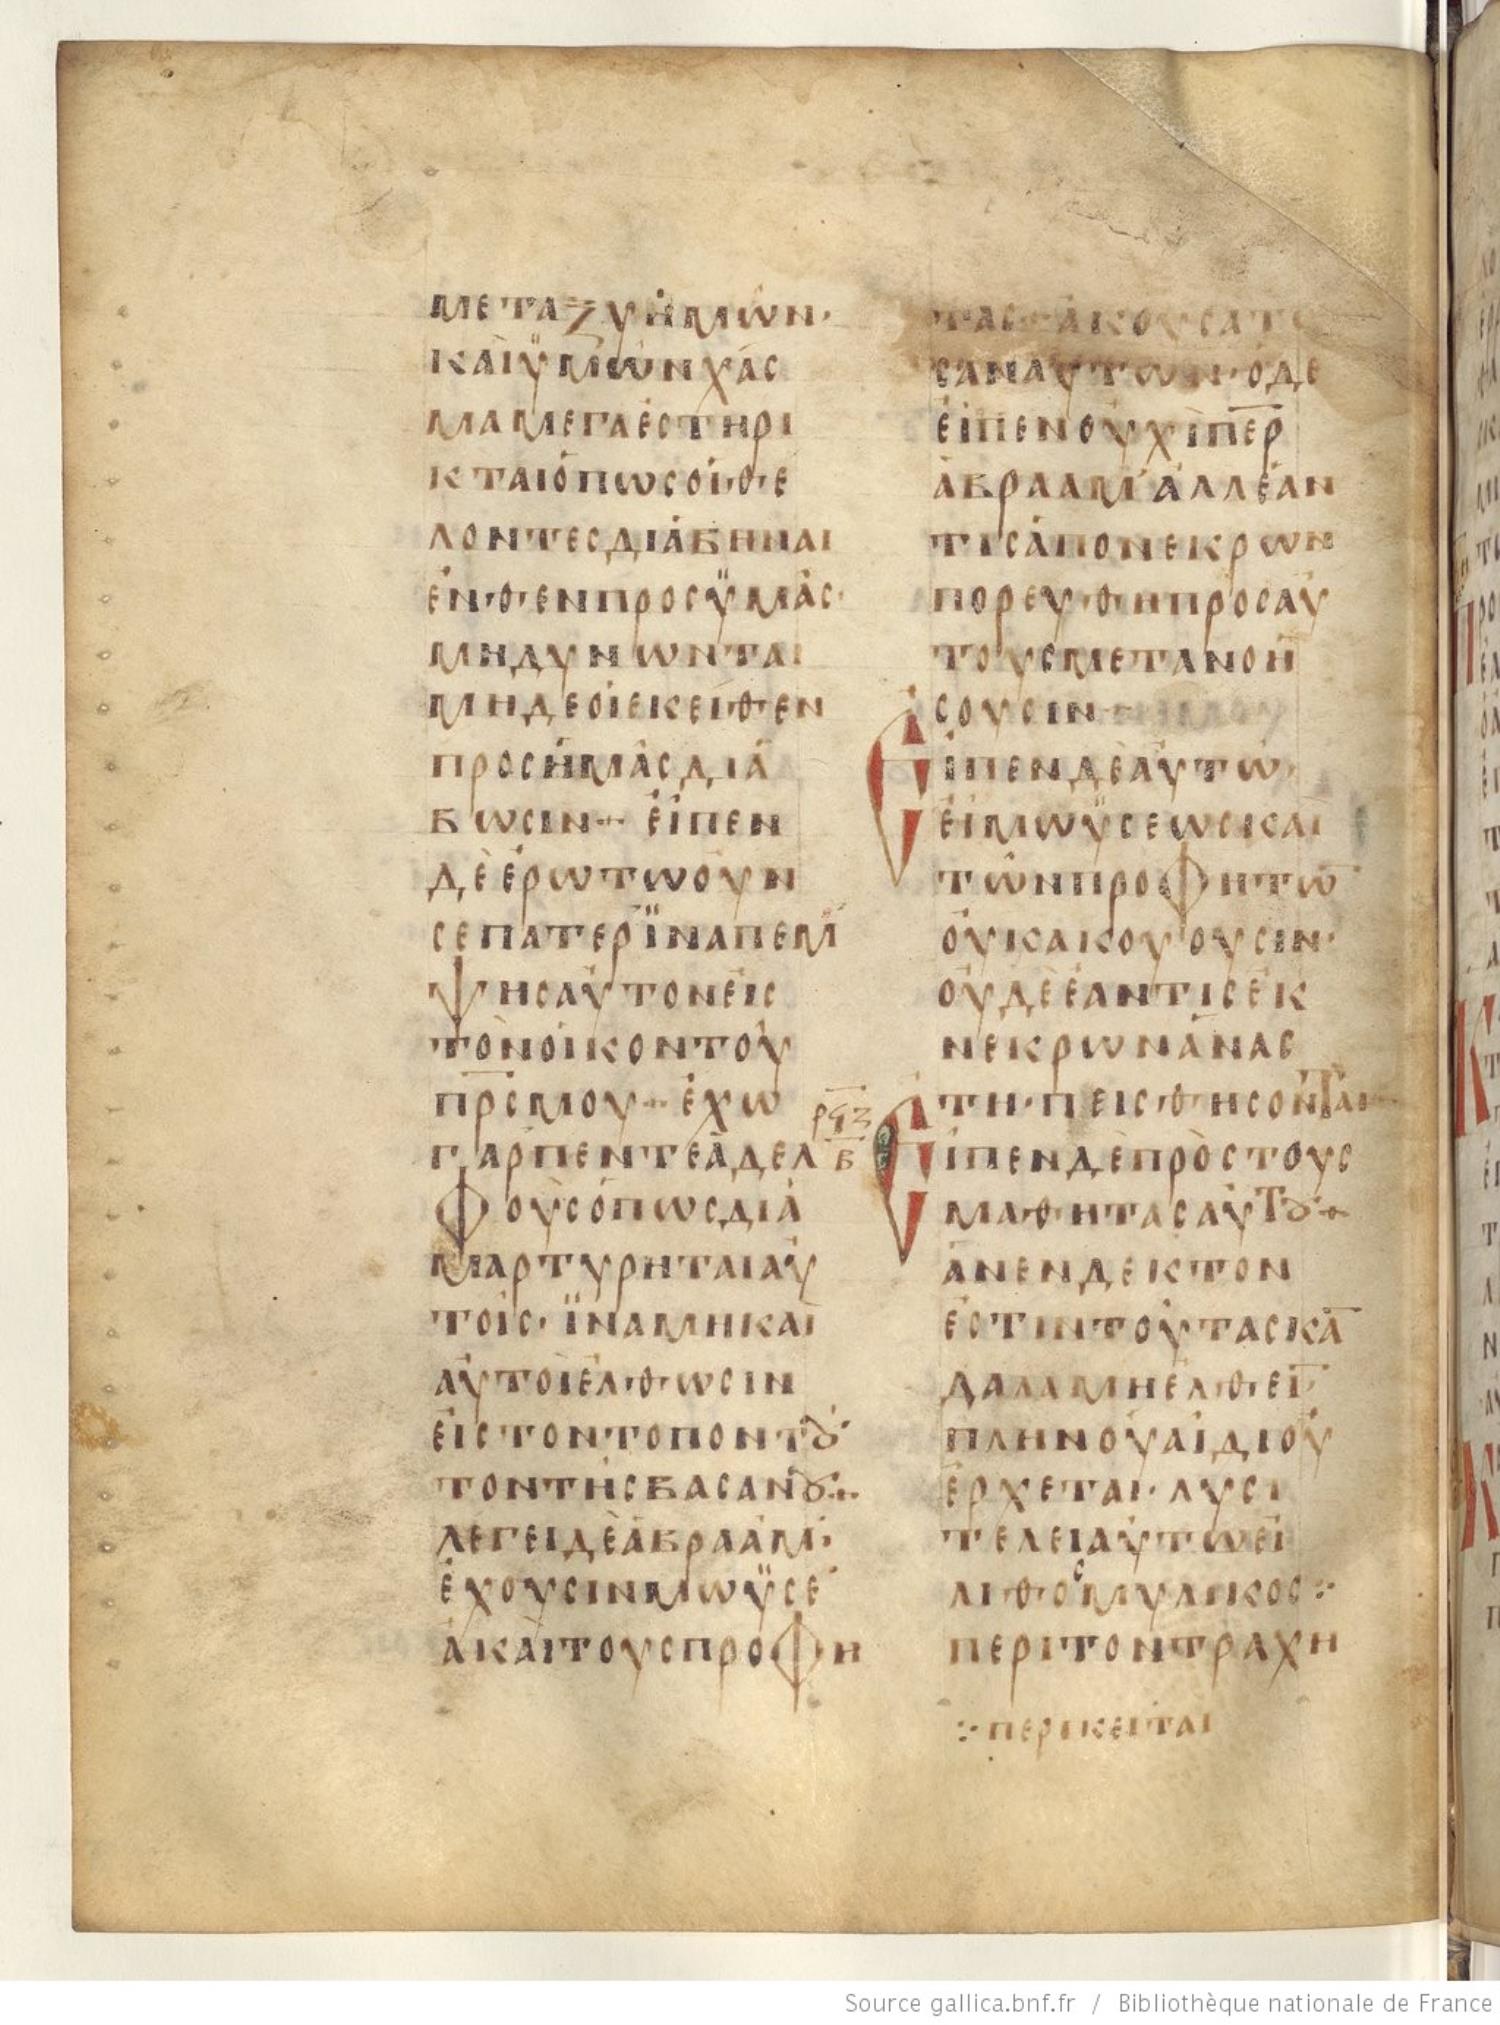 ΜΕΤΑΞΥΗΜΩΝ·
ΚΑΙΫΜΩΝΧΑΣ
ΜΑΜΕΓΑΕΣΤΗΡΙ
ΚΤΑΙΟΠΩΣΟΙΘΕ
ΛΟΝΤΕΣΔΙΑΒΗΝΑΙ
ΕΝΘΕΝΠΡΟΣΫΜΑΣ·
ΜΗΔΥΝΩΝΤΑΙ
ΜΗΔΕΟΙΕΚΕΙΘΕΝ
ΠΡΟΣΗΜΑΣΔΙΑ
ΒΩΣΙΝ+ ΕΙΠΕΝ
ΔΕΕΡΩΤΩΟΥΝ
ΣΕΠΑΤΕΡΪΝΑΠΕΜ
ΨΗΣΑΥΤΟΝΕΙΣ
ΤΟΝΟΙΚΟΝΤΟΥ
Π̅Ρ̅Σ̅ΜΟΥ+ ΕΧΩ
ΓΑΡΠΕΝΤΕΑΔΕΛ
ΦΟΥΣΟΠΩΣΔΙΑ
ΜΑΡΤΥΡΗΤΑΙΑΥ
ΤΟΙΣ· ΪΝΑΜΗΚΑΙ
ΑΥΤΟΙΕΛΘΩΣΙΝ
ΕΙΣΤΟΝΤΟΠΟΝΤȣ
ΤΟΝΤΗΣΒΑΣΑΝȣ·:
ΛΕΓΕΙΔΕΑΒΡΑΑΜ·
ΕΧΟΥΣΙΝΜΩΫΣΕ
ΑΚΑΙΤΟΥΣΠΡΟΦΗ
ΤΑΣ+ΑΚΟΥΣΑΤΩ
ΣΑΝΑΥΤΩΝ·ΟΔΕ
ΕΙΠΕΝΟΥΧΙΠ̅Ε̅Ρ̅
ΑΒΡΑΑΜ'ΑΛΛΕΑΝ
ΤΙΣΑΠΟΝΕΚΡΩΝ
ΠΟΡΕΥΘΗΠΡΟΣΑΥ
ΤΟΥΣΜΕΤΑΝΟΗ
ΣΟΥΣΙΝ+
ΕΙΠΕΝΔΕΑΥΤΩ·
ΕΙΜΩΫΣΕΩΣΚΑΙ
ΤΩΝΠΡΟΦΗΤΩ̅
ΟΥΚΑΚΟΥΟΥΣΙΝ·
ΟΥΔΕΕΑΝΤΙΣΕΚ
ΝΕΚΡΩΝΑΝΑΣ
ΤΗ·ΠΕΙΣΘΗΣΟΝΤΑΙ
ΡϞΖ
Β
ΕΙΠΕΝΔΕΠΡΟΣΤΟΥΣ
ΜΑΘΗΤΑΣΑΥΤȣ+
ΑΝΕΝΔΕΚΤΟΝ
ΕΣΤΙΝΤΟΥΤΑΣΚΑ̅
ΔΑΛΑΜΗΕΛΘΕΙ̅
ΠΛΗΝΟΥΑΙΔΙΟΥ
ΕΡΧΕΤΑΙ· ΛΥΣΙ
ΤΕΛΕΙΑΥΤΩΕΙ
ΛΙΘΟΣΜΥΛΙΚΟΣ :·
ΠΕΡΙΤΟΝΤΡΑΧΗ
:·ΠΕΡΙΚΕΙΤΑΙ
Source gallica.bnf.fr / Bibliothèque nationale de France